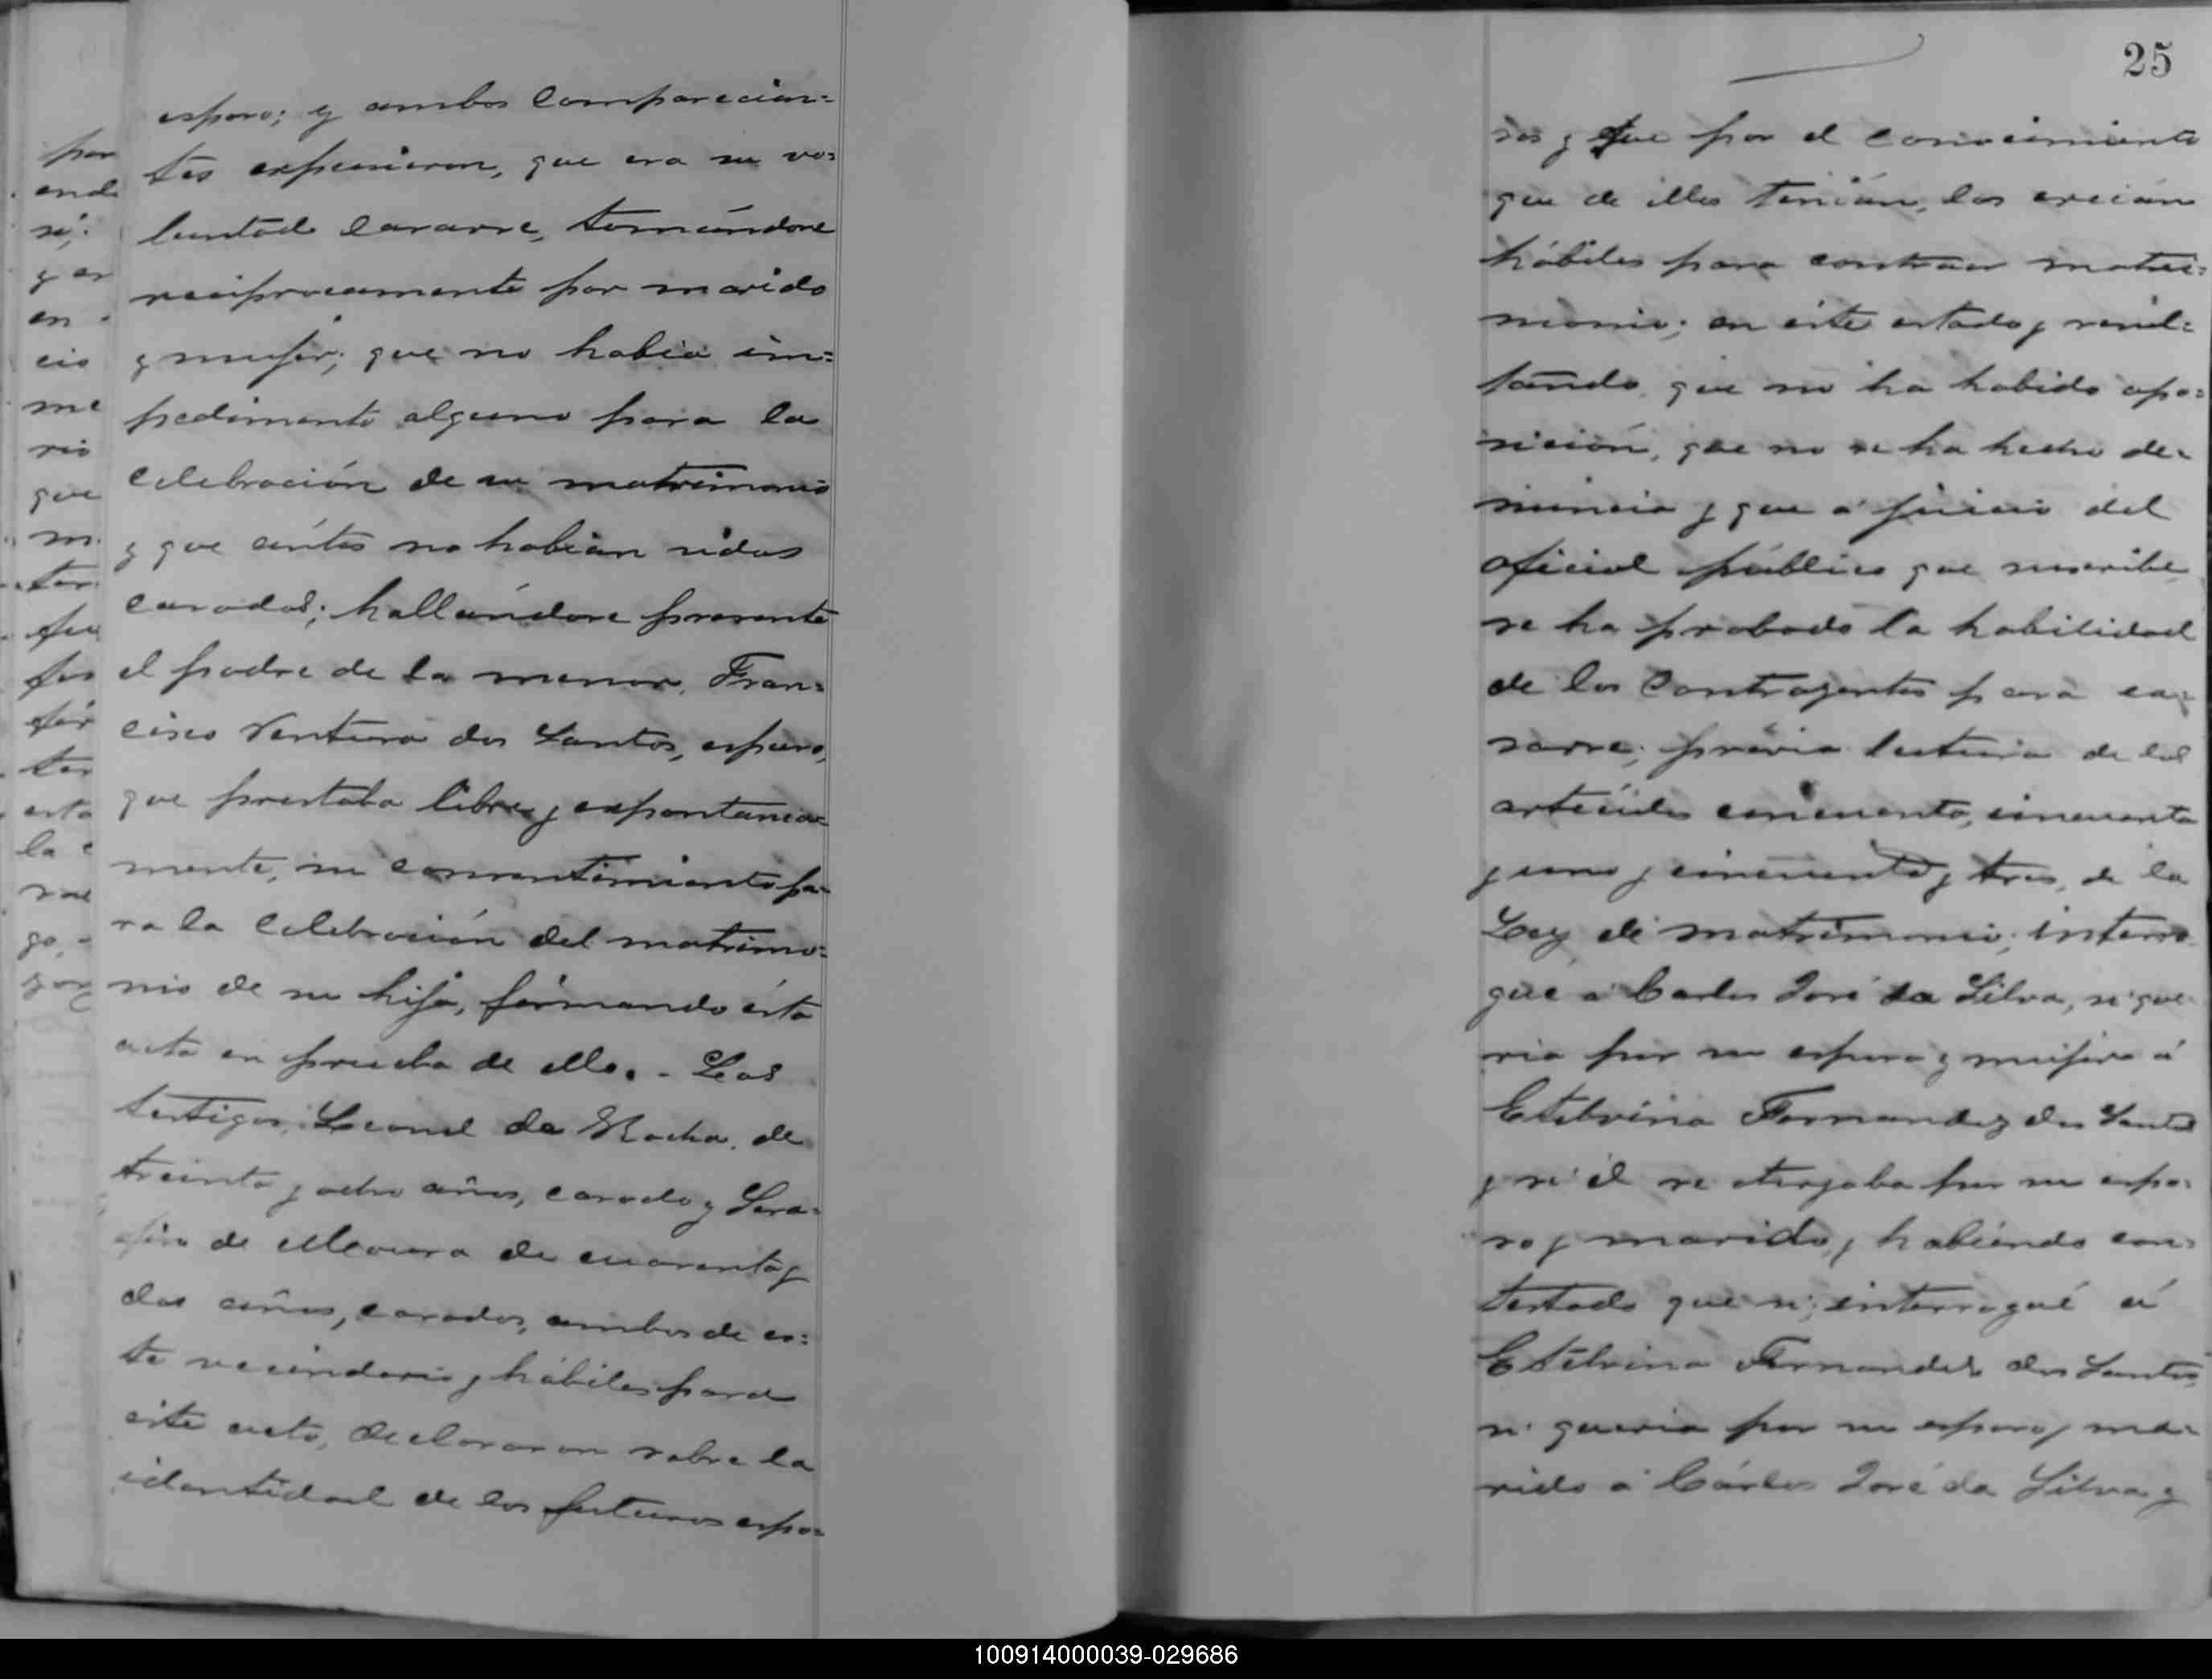 esposo; y ambos comparecien=
tes expusieron, que era su vo=
luntad casarse, tomándose
reciprocamente por marido
y mujer; que no habia im=
pedimento alguno para la
celebración de su matrimonio
y que ántes no habian sidos
casados; hallándose presente
el padre de la menor, Fran=
cisco Ventura dos Santos, expuso,
que prestaba libre y expontanea=
mente, su consentimiento pa=
ra la celebración del matrimo=
nio de su hija, firmando ésta
acta en prueba de ello. - Los
testigos, Leonel da Rocha, de
treinta y ocho años, casado y Sera=
fin de Moura de cuarenta y
dos años, casados, ambos de es=
te vecindario y hábiles para
este acto, declararon sobre la
identidad de los futuros espo=
25
sos y que por el conocimiento
que de ellos tenian, los creian
hábiles para contraer matri=
monio; en éste estado y resul=
tando, que no ha habido opo=
sición, que no se ha hecho de=
nuncia y que á juicio del
oficial público que suscribe,
se ha probado la habilidad
de los contrayentes para ca=
sarse; prévia lectura de los
articulos cincuenta, cincuenta
y uno y cincuenta y tres, de la
Ley de matrimonio; interro
gué á Carlos José da Silva, si que
ria por su esposa y mujer á
Etelvina Fernandez dos Santos
y si él se otorgaba por su espo=
so y marido, y habiendo con=
testado que si; interrogué á
Etelvina Fernandes dos Santos,
si queria por su esposo y ma=
rido á Cárlos José da Silva y
por
ende
si;
y es
en
cio
me
rio
que
m
ter
fu
fos
fir
tes
esta
la
ras
go,
por
100914000039-029686